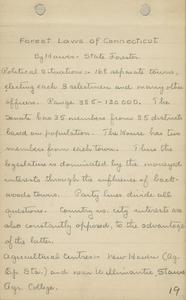 Forest Laws of Connecticut
By Hawes - State Forester
Political Situation:- 168 separate towns,
electing each 3 selectmen and many other
officers. Range 385 - 120000. The
Senate has 35 members from 35 districts
based on population. The House has two
members from each town. Thus the
legislature is dominated by the moneyed
interests through the influence of back-
woods towns. Party lines divide all
questions. Country vs. city interests are
also constantly opposed, to the advantage
of the latter.
Agricultural Centres - New Haven (Ag.
Exp. Sta.) and near Willimantic, Storrs
Agr. College.
19